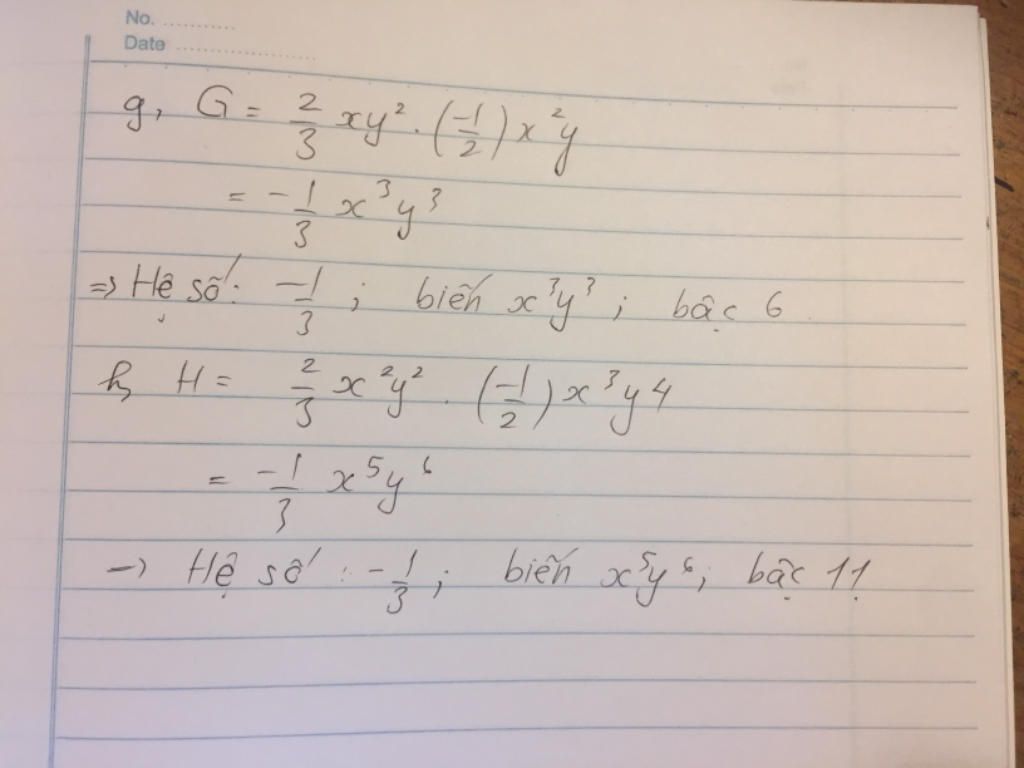 No. ............
Date ........................
g, G = 2/3 xy² . (-1/2) x²y
= -1/3 x³y³
=> Hệ số: -1/3 ; biến x³y³ ; bậc 6
h, H = 2/3 x²y² . (-1/2) x³y4
= -1/3 x⁵y⁶
-> Hệ số : -1/3 ; biến x⁵y⁶ ; bậc 11